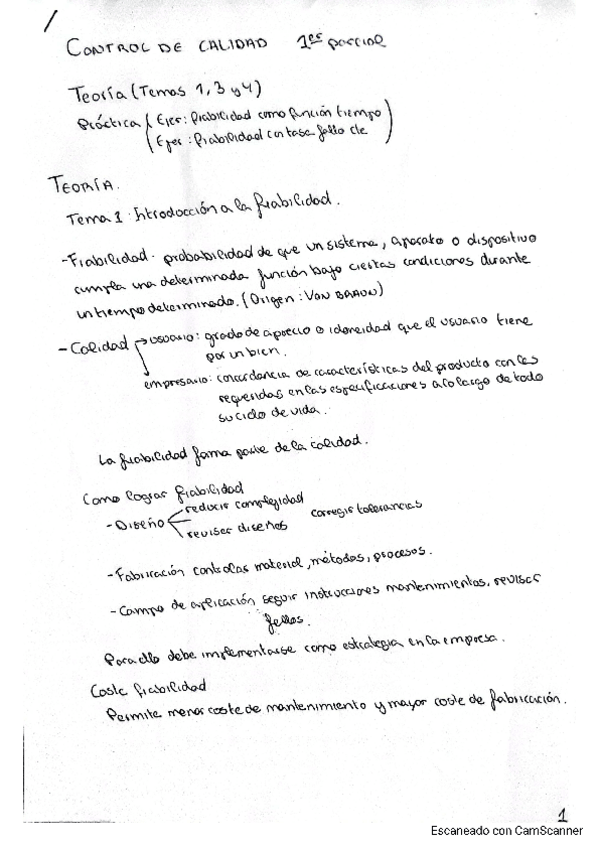 CONTROL DE CALIDAD 1er parcial
Teoría (Temas 1, 3 y 4)
Práctica ( Ejer: fiabilidad como función tiempo
( Ejer: fiabilidad con tasa fallo cte )
TEORÍA.
Tema 1. Introducción a la fiabilidad.
-Fiabilidad. probabilidad de que un sistema, aparato o dispositivo
cumpla una determinada función bajo ciertas condiciones durante
un tiempo determinado. (Origen: VON BRAUN)
-Calidad → usuario: grado de aprecio o idoneidad que el usuario tiene
por un bien.
empresario: concordancia de características del producto con las
requeridas en las especificaciones a lo largo de todo
su ciclo de vida.
La fiabilidad forma parte de la calidad.
Como lograr fiabilidad
reducir complejidad
-Diseño corregir tolerancias
revisar diseños
-Fabricación controlas material, métodos, procesos.
-Campo de aplicación seguir instrucciones mantenimientos, revisar
fallos.
Para ello debe implementarse como estrategia en la empresa.
Coste fiabilidad
Permite menor coste de mantenimiento y mayor coste de fabricación.
1
Escaneado con CamScanner